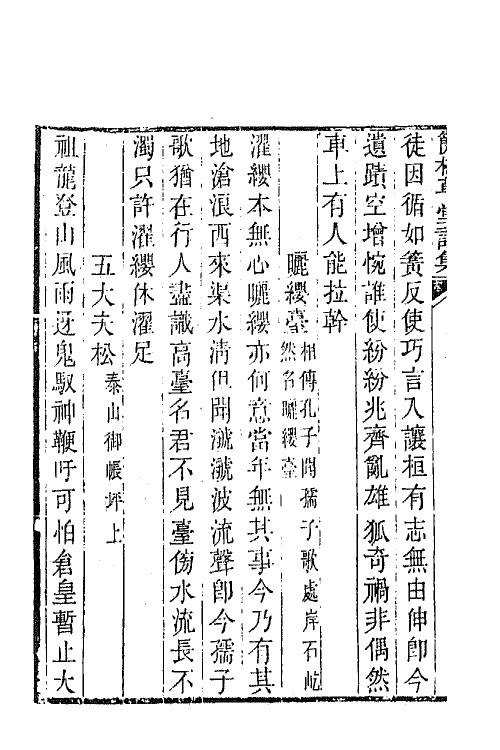 草堂詩集
徒因循如簧反使巧言入讓桓有志無由伸卽今
遺蹟空增惋誰使紛紛兆齊亂雄狐奇禍非偶然
車上有人能拉幹
曬纓臺相傳孔子聞孺子歌處岸石屹
然名曬纓臺
濯纓本無心曬纓亦何意當年無其事今乃有其
地滄浪西來渠水淸但聞㶁㶁波流聲卽今孺子
歌猶在行人盡識高臺名君不見臺傍水流長不
濁只許濯纓休濯足
五大夫松泰山御帳坪上
祖龍登山風雨迓鬼馭神鞭吁可怕倉皇暫止大